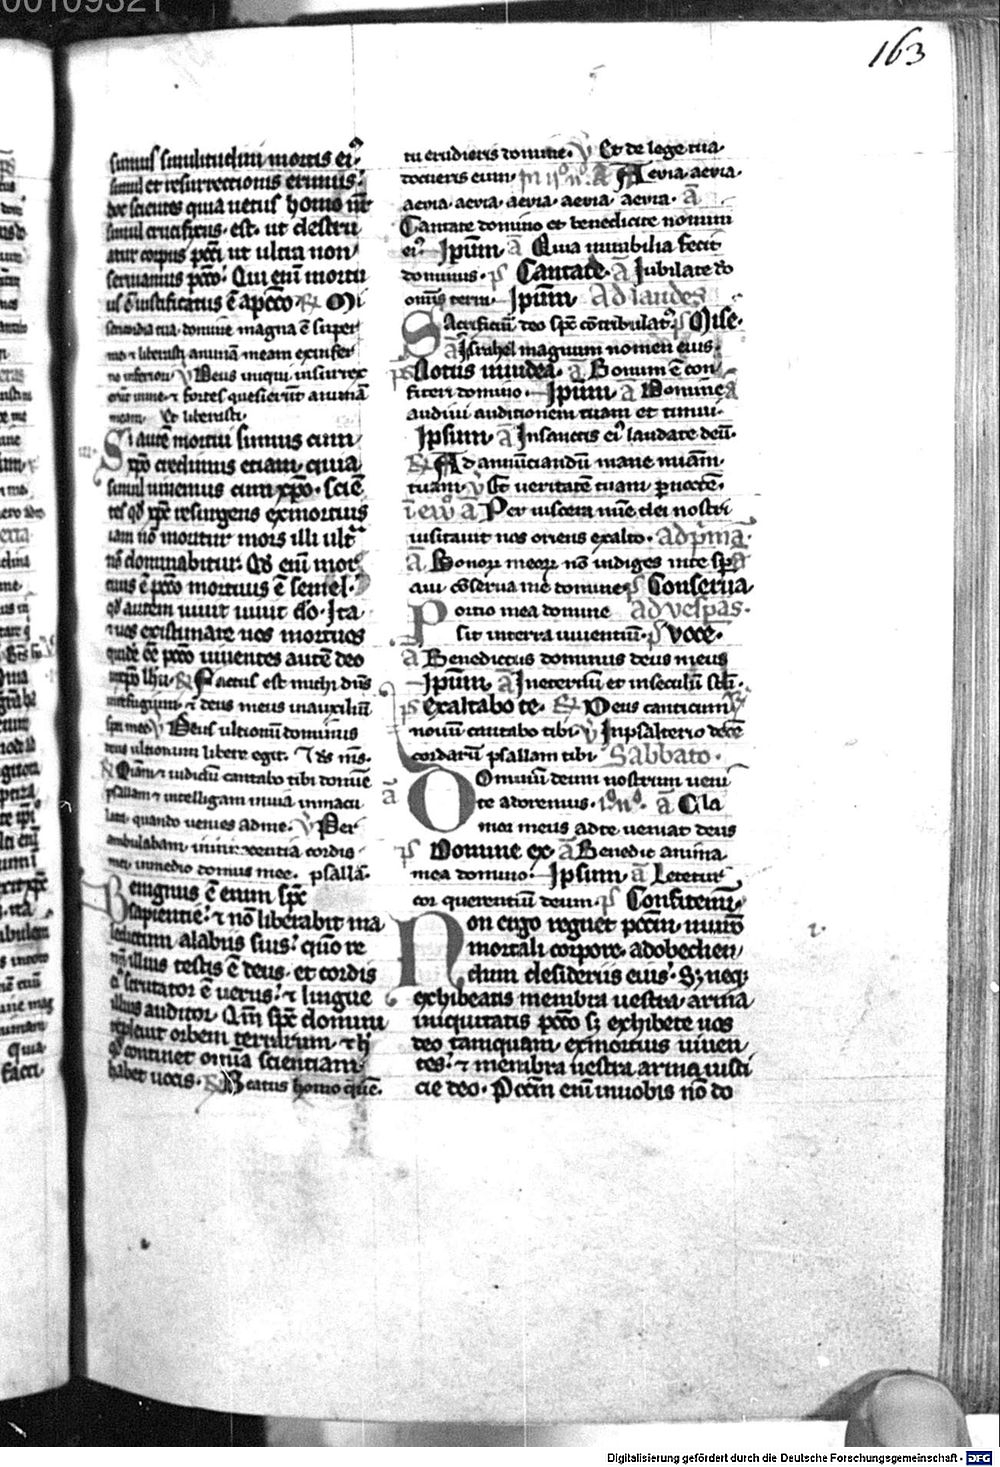 00109321
163
sumus similitudini mortis ei⁹.
simul et resurrectionis erimus.
hoc scientes quia uetus homo nr̄
simul crucifixus est. ut destru
atur corpus pcc̄i ut ultra non
seruiamus pcc̄o. Qui eni᷑ mortu
us ē iustificatus ē apcc̄o ℟ Mi
sericordia tua domine magna ē super
me ⁊ liberasti animā meam exinfer
no inferiori ℣ Deus iniqui insurrex
erunt in me ⁊ fortes quesierūt animā
meam. Et liberasti.
Si autē mortui sumus cum
xp̄o credimus etiam quia
simul uiuemus cum xp̄o. sciē
tes qd̄ xp̄c resurgens exmortuis
iam nō moritur mors illi ult̄
nō dominabitur. Qd̄ enī mor
tuus ē pcc̄o mortuus ē semel.
qd̄ autem uiuit uiuit dō. Ita
⁊ uos existimate uos mortuos
quidē cē pcc̄o uiuentes autē deo
inxp̄o ihu. ℟ Factus est michi dn̄s
inrefugium. ⁊ deus meus inauxiliū
spei mee ℣ Deus ultionū dominus
deus ultionum libere egit.
℟ Quam ⁊ iudiciū cantabo tibi domine
psallam ⁊ intelligam inuia inmacu
lata. quando uenies adme. ℣ Per
ambulabam in innocentia cordis
mei inmedio domus mee. psallā.
Benignus ē enim spc̄
sapientie. ⁊ nō liberabit ma
ledictum alabiis suis. quo re
nū illius testis ē deus. et cordis
ei⁹ scrutator ē uerus. ⁊ lingue
illius auditor. Qm̄ spc̄ domini
repleuit orbem terrarum. ⁊ h̄
qd̄ continet omnia scientiam
habet uocis. ℟ Beatus homo quē.
tu erudieris domine. ℣ Et de lege tua
docueris eum. in ii° n°. a Aeuia aeuia.
aeuia. aeuia. aeuia. aeuia. aeuia. a
Cantate domino et benedicite nomini
ei⁹. Ipsum a Quia mirabilia fecit
dominus. ps Cantate. a Jubilate dō
omnis terra. Ipsum Ad laudes
Sacrificiū deo spc̄ cōtribulat⁹. ps Mise.
a Israhel magnum nomen eius.
ps Notus iniudea. a Bonum ē con
fiteri domino. Ipsum a Domine
audiui auditionem tuam et timui.
Ipsum a Insanctis ei⁹ laudate deū.
℟ Ad annūciandū mane miām
tuam. ℣ Et ueritatē tuam p noctē.
a Per uiscera mīe dei nostri
uisitauit nos oriens exalto. ad pmā.
a Bonoꝝ meoꝝ nō indiges inte spa
aui cōserua me domine ps Conserua
Portio mea domine ad uespas.
sit interra uiuentiū. ps Voce.
a Benedictus dominus deus meus
Ipsum a Ineternū et inseculū scli.
ps exaltabo te. ℟ Deus canticum
nouū cantabo tibi ℣ Inpsalterio decē
cordarū psallam tibi Sabbato.
Dominū deum nostrum ueni
te adoremus. a Cla
mor meus adte ueniat deus
ps Domine ex. a Benedic anima
mea domino. Ipsum a Letetur
cor querentiū deum. ps Confitemi.
Non ergo regnet pccm̄ inuro
mortali corpore. adobedien
dum desideriis eius. Sꝫ neqꝫ
exhibeatis membra uestra arma
iniquitatis pcc̄o sꝫ exhibete uos
deo tamquam exmortuis uiuen
tes. ⁊ membra uestra arma iusti
cie deo. Pccm̄ enī inuobis nō do
Digitalisierung gefördert durch die Deutsche Forschungsgemeinschaft - DFG